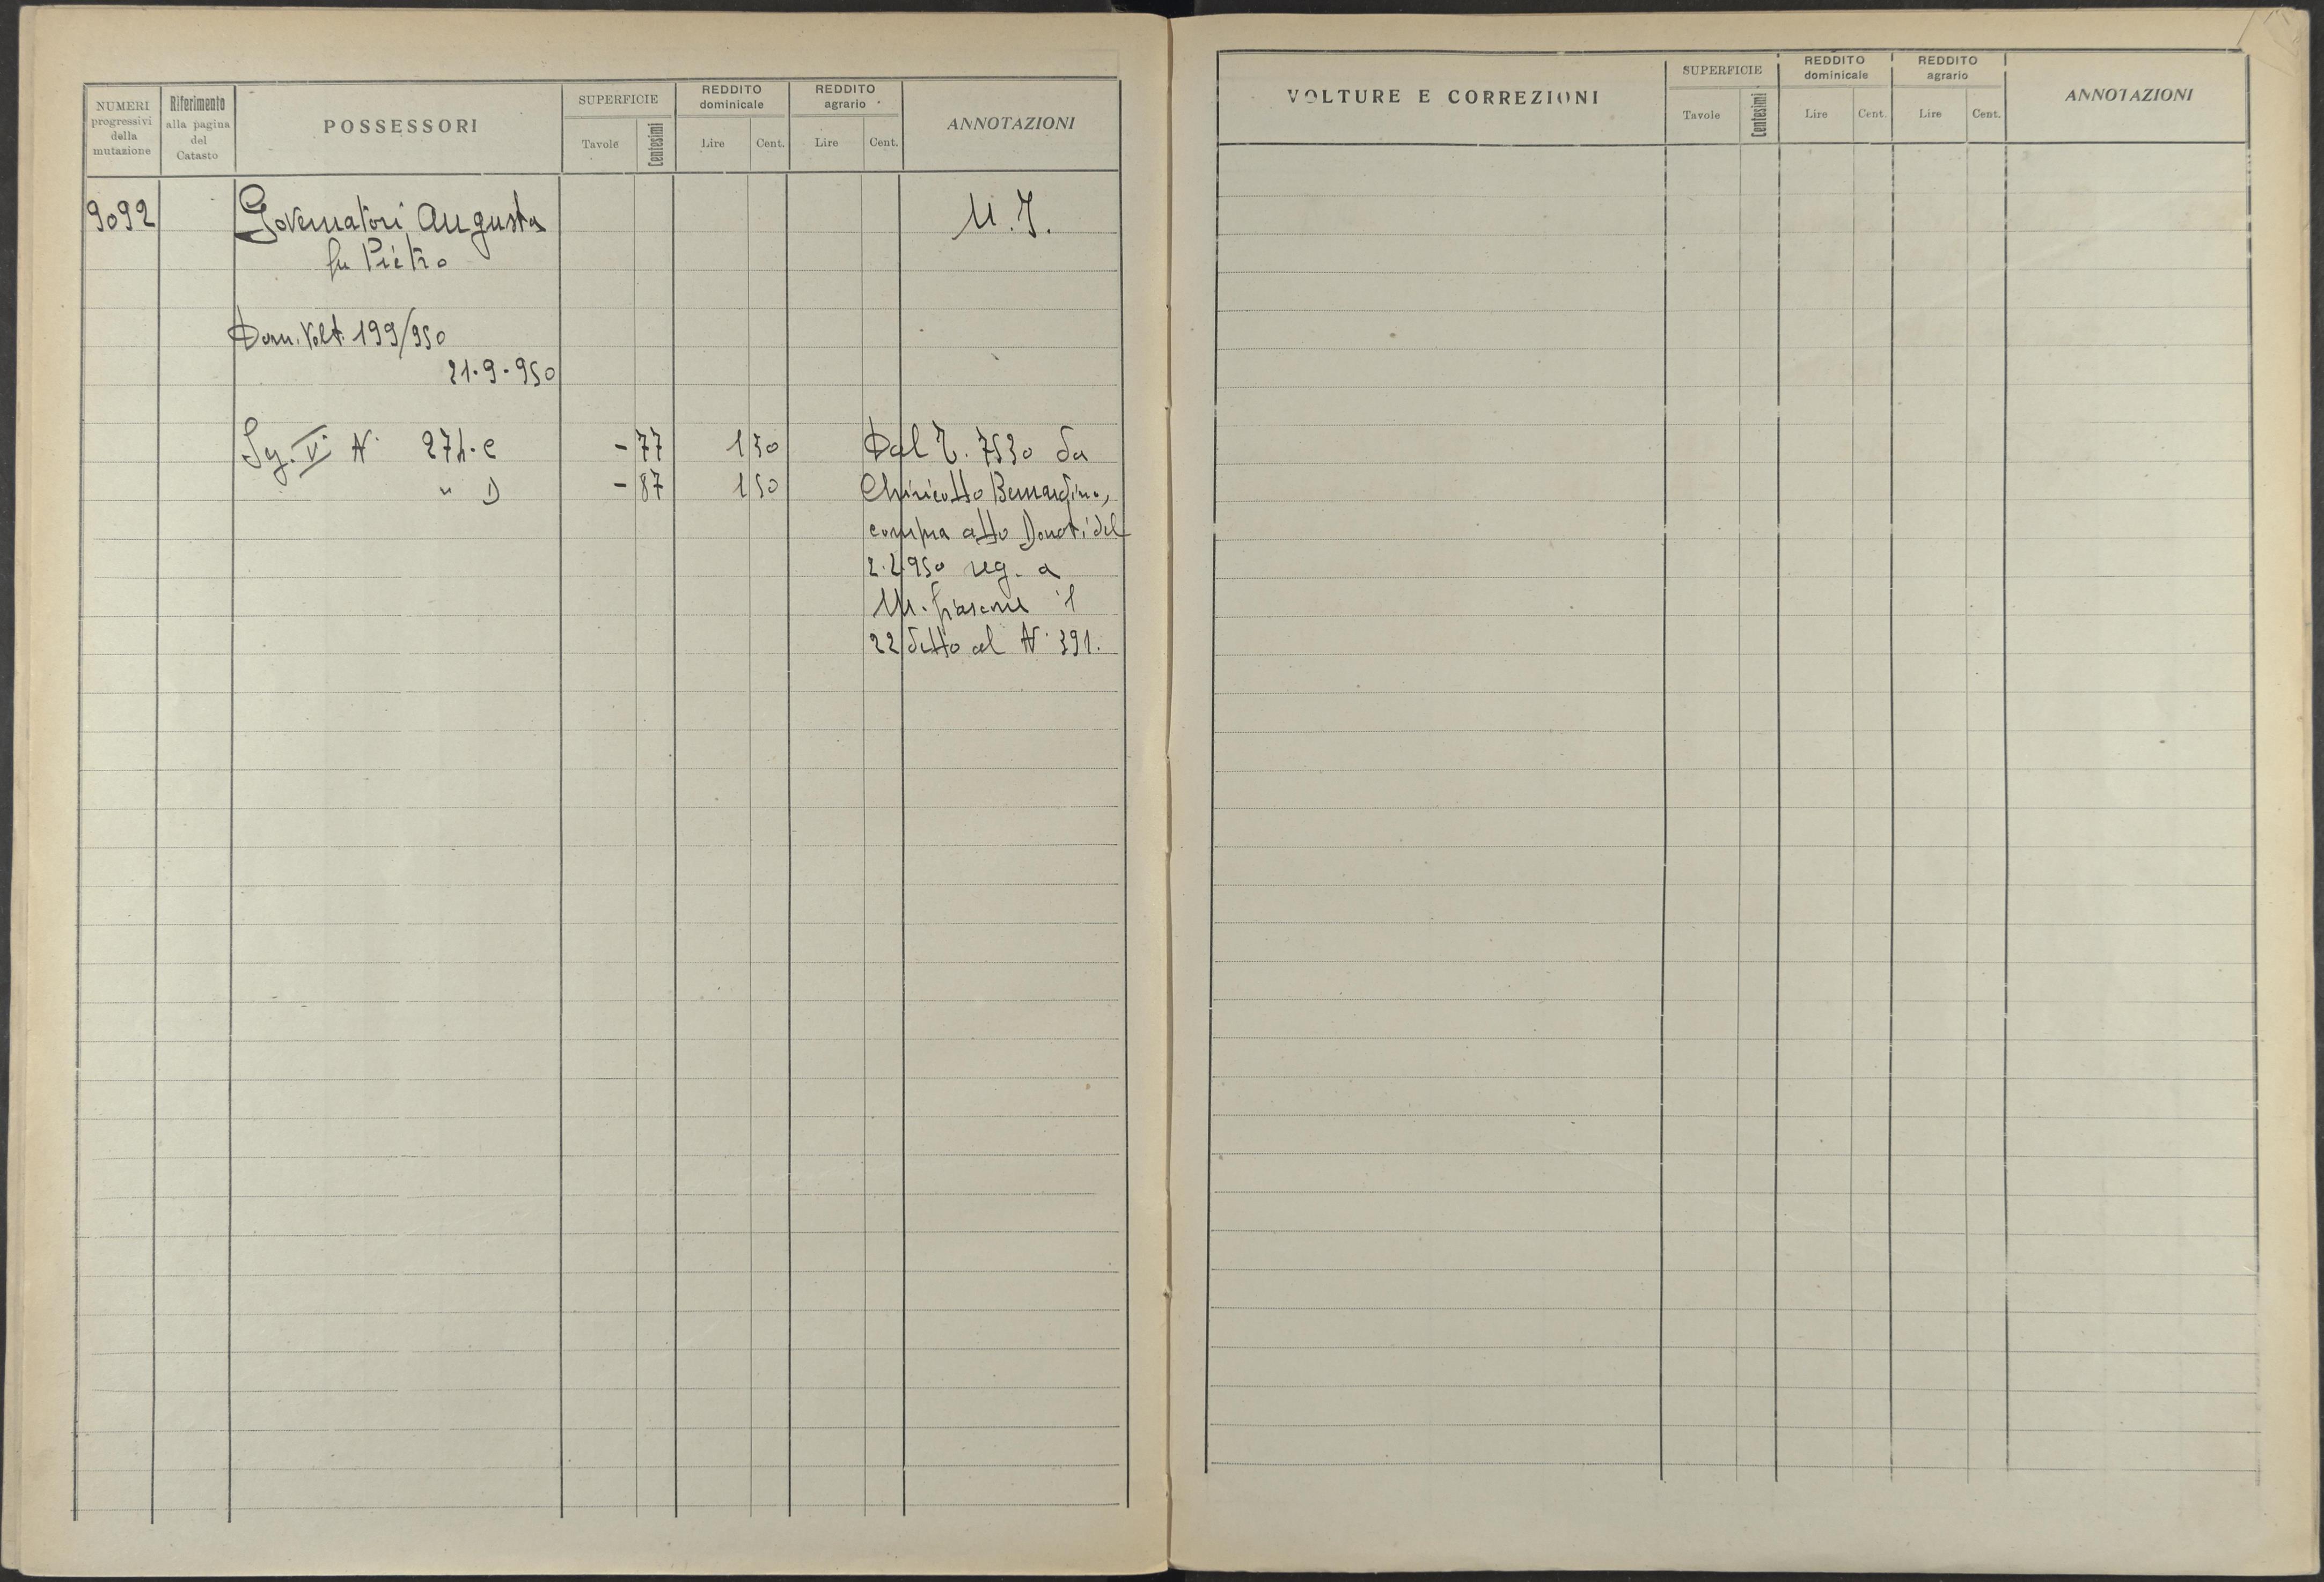 NUMERI progressivi della mutazione
Riferimento alla pagina del Catasto
POSSESSORI
SUPERFICIE
Tavole
Centesimi
REDDITO dominicale
Lire
Cent.
REDDITO agrario
Lire
Cent.
ANNOTAZIONI
9092
Governatori Augusta
fu Pietro
M. J.
Dom. Volt. 199/950
21.9.950
Sez. V N. 274.C - 77 1 30 Dal T. 7530 da
" D - 87 1 50 Chiricotto Bernardino,
compra atto Donati del
2.2.950 reg. a
M. fiascone il
22 detto al N. 391.
VOLTURE E CORREZIONI
SUPERFICIE
Tavole
Centesimi
REDDITO dominicale
Lire
Cent.
REDDITO agrario
Lire
Cent.
ANNOTAZIONI